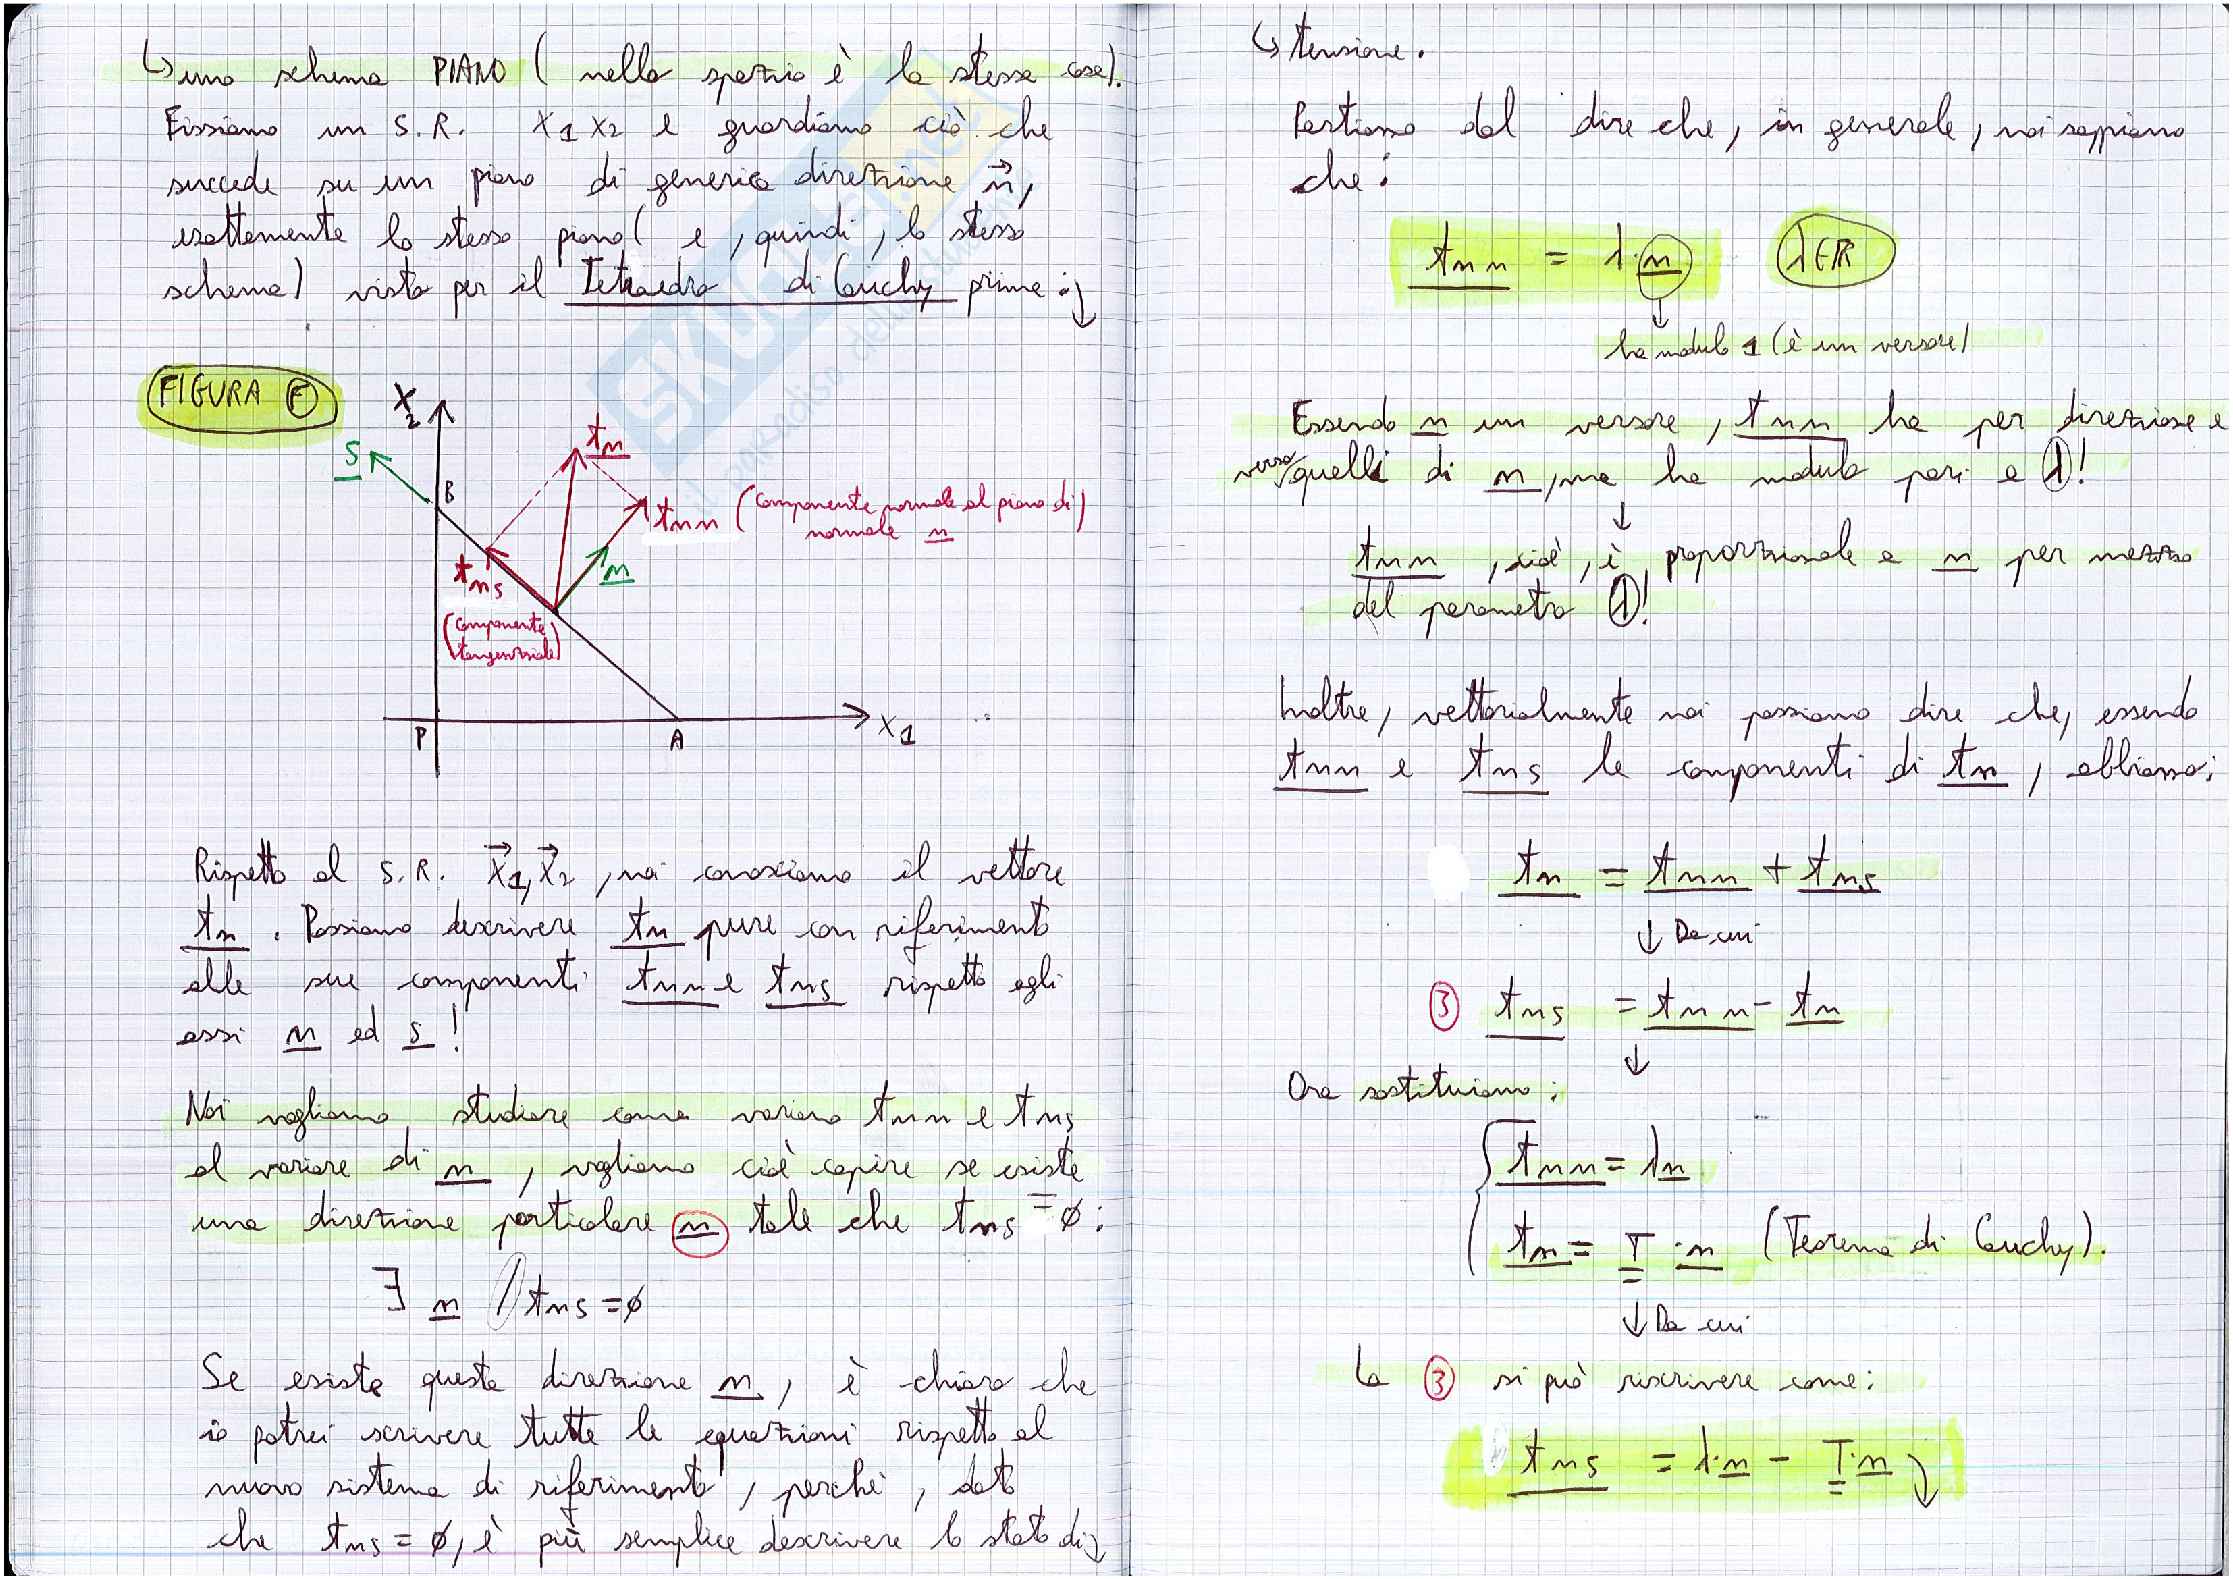 ↳ uno schema PIANO (nello spazio è la stessa cosa).
Fissiamo un S.R. X1 X2 e guardiamo ciò che
succede su un piano di generica direzione n⃗,
esattamente lo stesso piano (e, quindi, lo stesso
schema) visto per il Tetraedro di Cauchy prima: ↓
FIGURA F
X2
s
B
tn
tnn (componente normale al piano di
normale n)
n
tns
(componente
tangenziale)
P
A
X1
Rispetto al S.R. X⃗1, X⃗2, noi conosciamo il vettore
tn. Possiamo descrivere tn pure con riferimento
alle sue componenti tnn e tns rispetto agli
assi n ed s!
Noi vogliamo studiare come variano tnn e tns
al variare di n, vogliamo cioè capire se esiste
una direzione particolare n tale che tns = ∅:
∃ n / tns = ∅
Se esiste questa direzione n, è chiaro che
io potrei scrivere tutte le equazioni rispetto al
nuovo sistema di riferimento, perché, dato
che tns = ∅, è più semplice descrivere lo stato di ↓
↳ tensione.
Partiamo dal dire che, in generale, noi sappiamo
che:
tnn = λ·n λ∈R
↓
ha modulo 1 (è un versore)
Essendo n un versore, tnn ha per direzione e
verso quelli di n, ma ha modulo pari a λ!
↓
tnn, cioè, è proporzionale a n per mezzo
del parametro λ!
Inoltre, vettorialmente noi possiamo dire che, essendo
tnn e tns le componenti di tn, abbiamo:
tn = tnn + tns
↓ Da cui
3 tns = tnn - tn
↓
Ora sostituiamo:
tnn = λn
tn = T·n (Teorema di Cauchy).
↓ Da cui
la 3 si può riscrivere come:
tns = λ·n - T·n ↓
SKUOLA.net
il paradiso dello studente